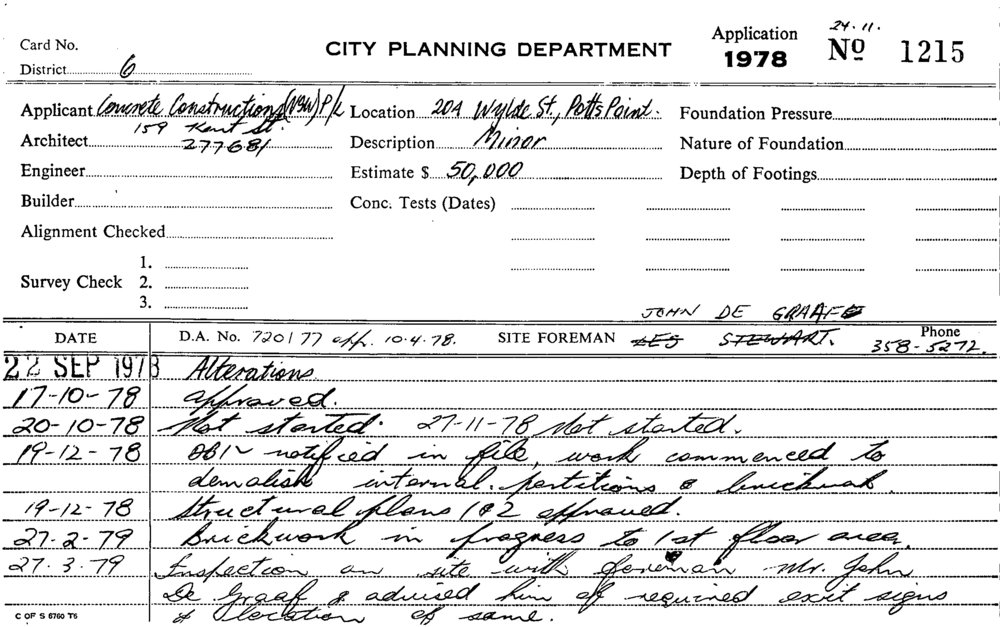 24.11.
Card No. CITY PLANNING DEPARTMENT Application 1978 Nº 1215
District 6
Applicant Concrete Constructions (NSW) P/L Location 20A Wylde St., Potts Point. Foundation Pressure
159 Kent St.
Architect 277681 Description Minor Nature of Foundation
Engineer Estimate $ 50,000 Depth of Footings
Builder Conc. Tests (Dates)
Alignment Checked
1.
Survey Check 2.
3.
JOHN DE GRAAF
DATE D.A. No. 720/77 app. 10.4.78. SITE FOREMAN LES STEWART. Phone 358-5272.
22 SEP 1978 Alterations.
17-10-78 approved.
20-10-78 Not started. 27-11-78 Not started.
19-12-78 notified in file, work commenced to
demolish internal partitions & brickwork.
19-12-78 Structural plans 1&2 approved.
27-2-79 Brickwork in progress to 1st floor area.
27.3.79 Inspection on site with foreman Mr. John
De Graaf & advised him of required exit signs
& location of same.
C OF S 6760 T6